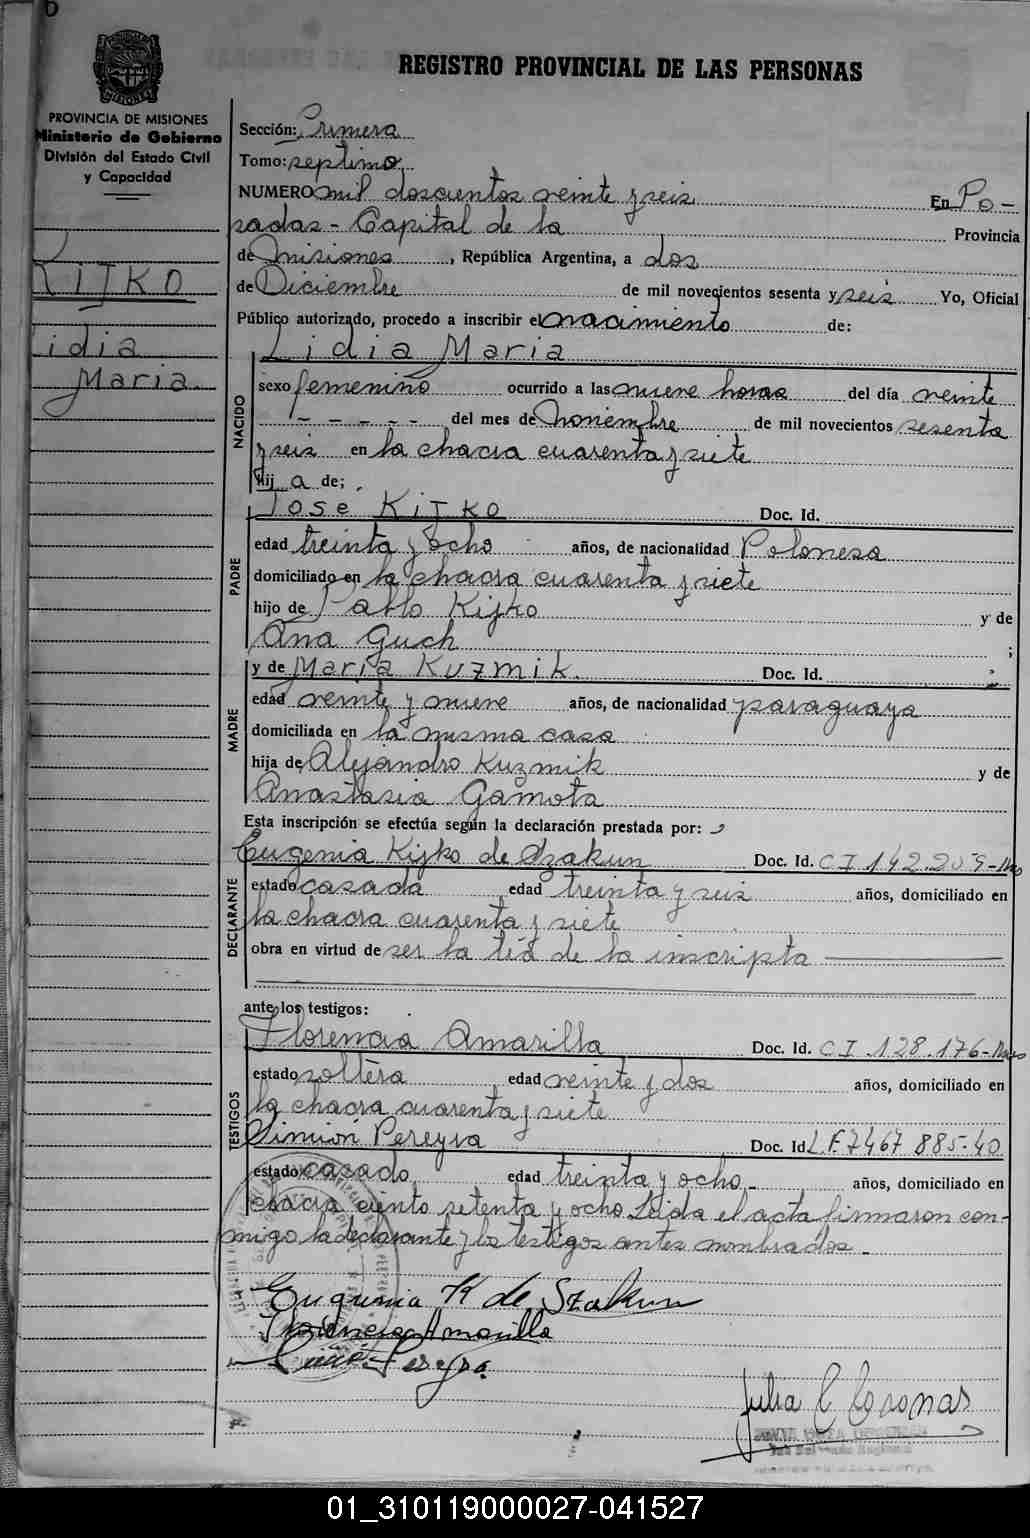 REGISTRO PROVINCIAL DE LAS PERSONAS
PROVINCIA DE MISIONES
Ministerio de Gobierno
División del Estado Civil
y Capacidad
KIJKO
Lidia
Maria.
Sección: Primera
Tomo: septimo
NUMERO mil doscientos veinte y seis En Po-
sadas - Capital de la Provincia
de Misiones, República Argentina, a dos
de Diciembre de mil novecientos sesenta y seis Yo, Oficial
Público autorizado, procedo a inscribir el nacimiento de:
Lidia Maria
NACIDO
sexo femenino ocurrido a las nueve horas del día veinte
- - - - - del mes de Noviembre de mil novecientos sesenta
y seis en la chacra cuarenta y siete
hij a de;
PADRE
Jose Kijko Doc. Id.
edad treinta y ocho años, de nacionalidad Polonesa
domiciliado en la chacra cuarenta y siete
hijo de Pablo Kijko y de
Ana Guch ;
MADRE
y de Maria Kuzmik. Doc. Id.
edad veinte y nueve años, de nacionalidad paraguaya
domiciliada en la misma casa
hija de Alejandro Kuzmik y de
Anastasia Gamota
Esta inscripción se efectúa según la declaración prestada por:
DECLARANTE
Eugenia Kijko de Szakun Doc. Id. C I 142.209-Mns
estado casada edad treinta y seis años, domiciliado en
la chacra cuarenta y siete
obra en virtud de ser la tía de la inscripta
ante los testigos:
TESTIGOS
Florencia Amarilla Doc. Id. C I .128.176-Mns
estado soltera edad veinte y dos años, domiciliado en
la chacra cuarenta y siete
Simión Pereyra Doc. Id L.E.7467 885-40
estado casado edad treinta y ocho - años, domiciliado en
chacra ciento setenta y ocho Leida el acta firmaron con-
migo la declarante y los testigos antes nombrados -
Eugenia K de Szakun
Florencia Amarilla
Pereyra.
Julia C
01_310119000027-041527